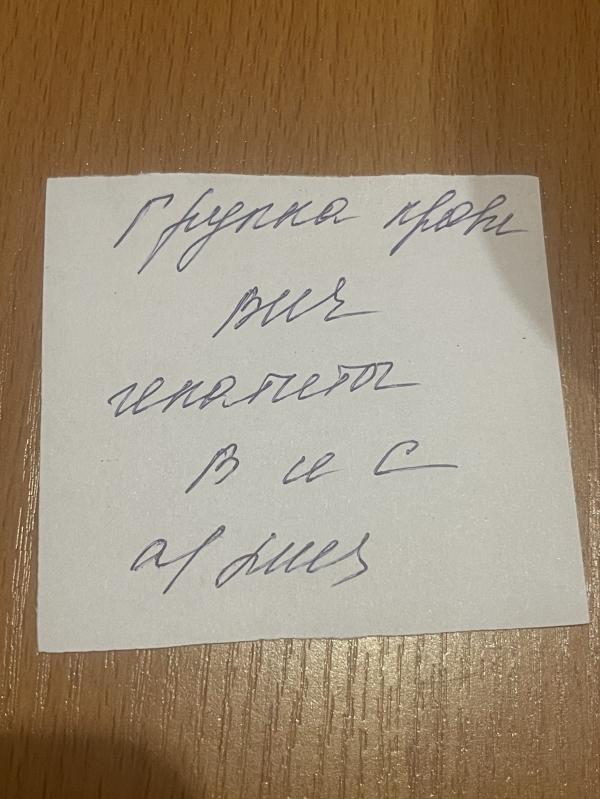 Группа крови
ВИЧ
гепатиты
В и С